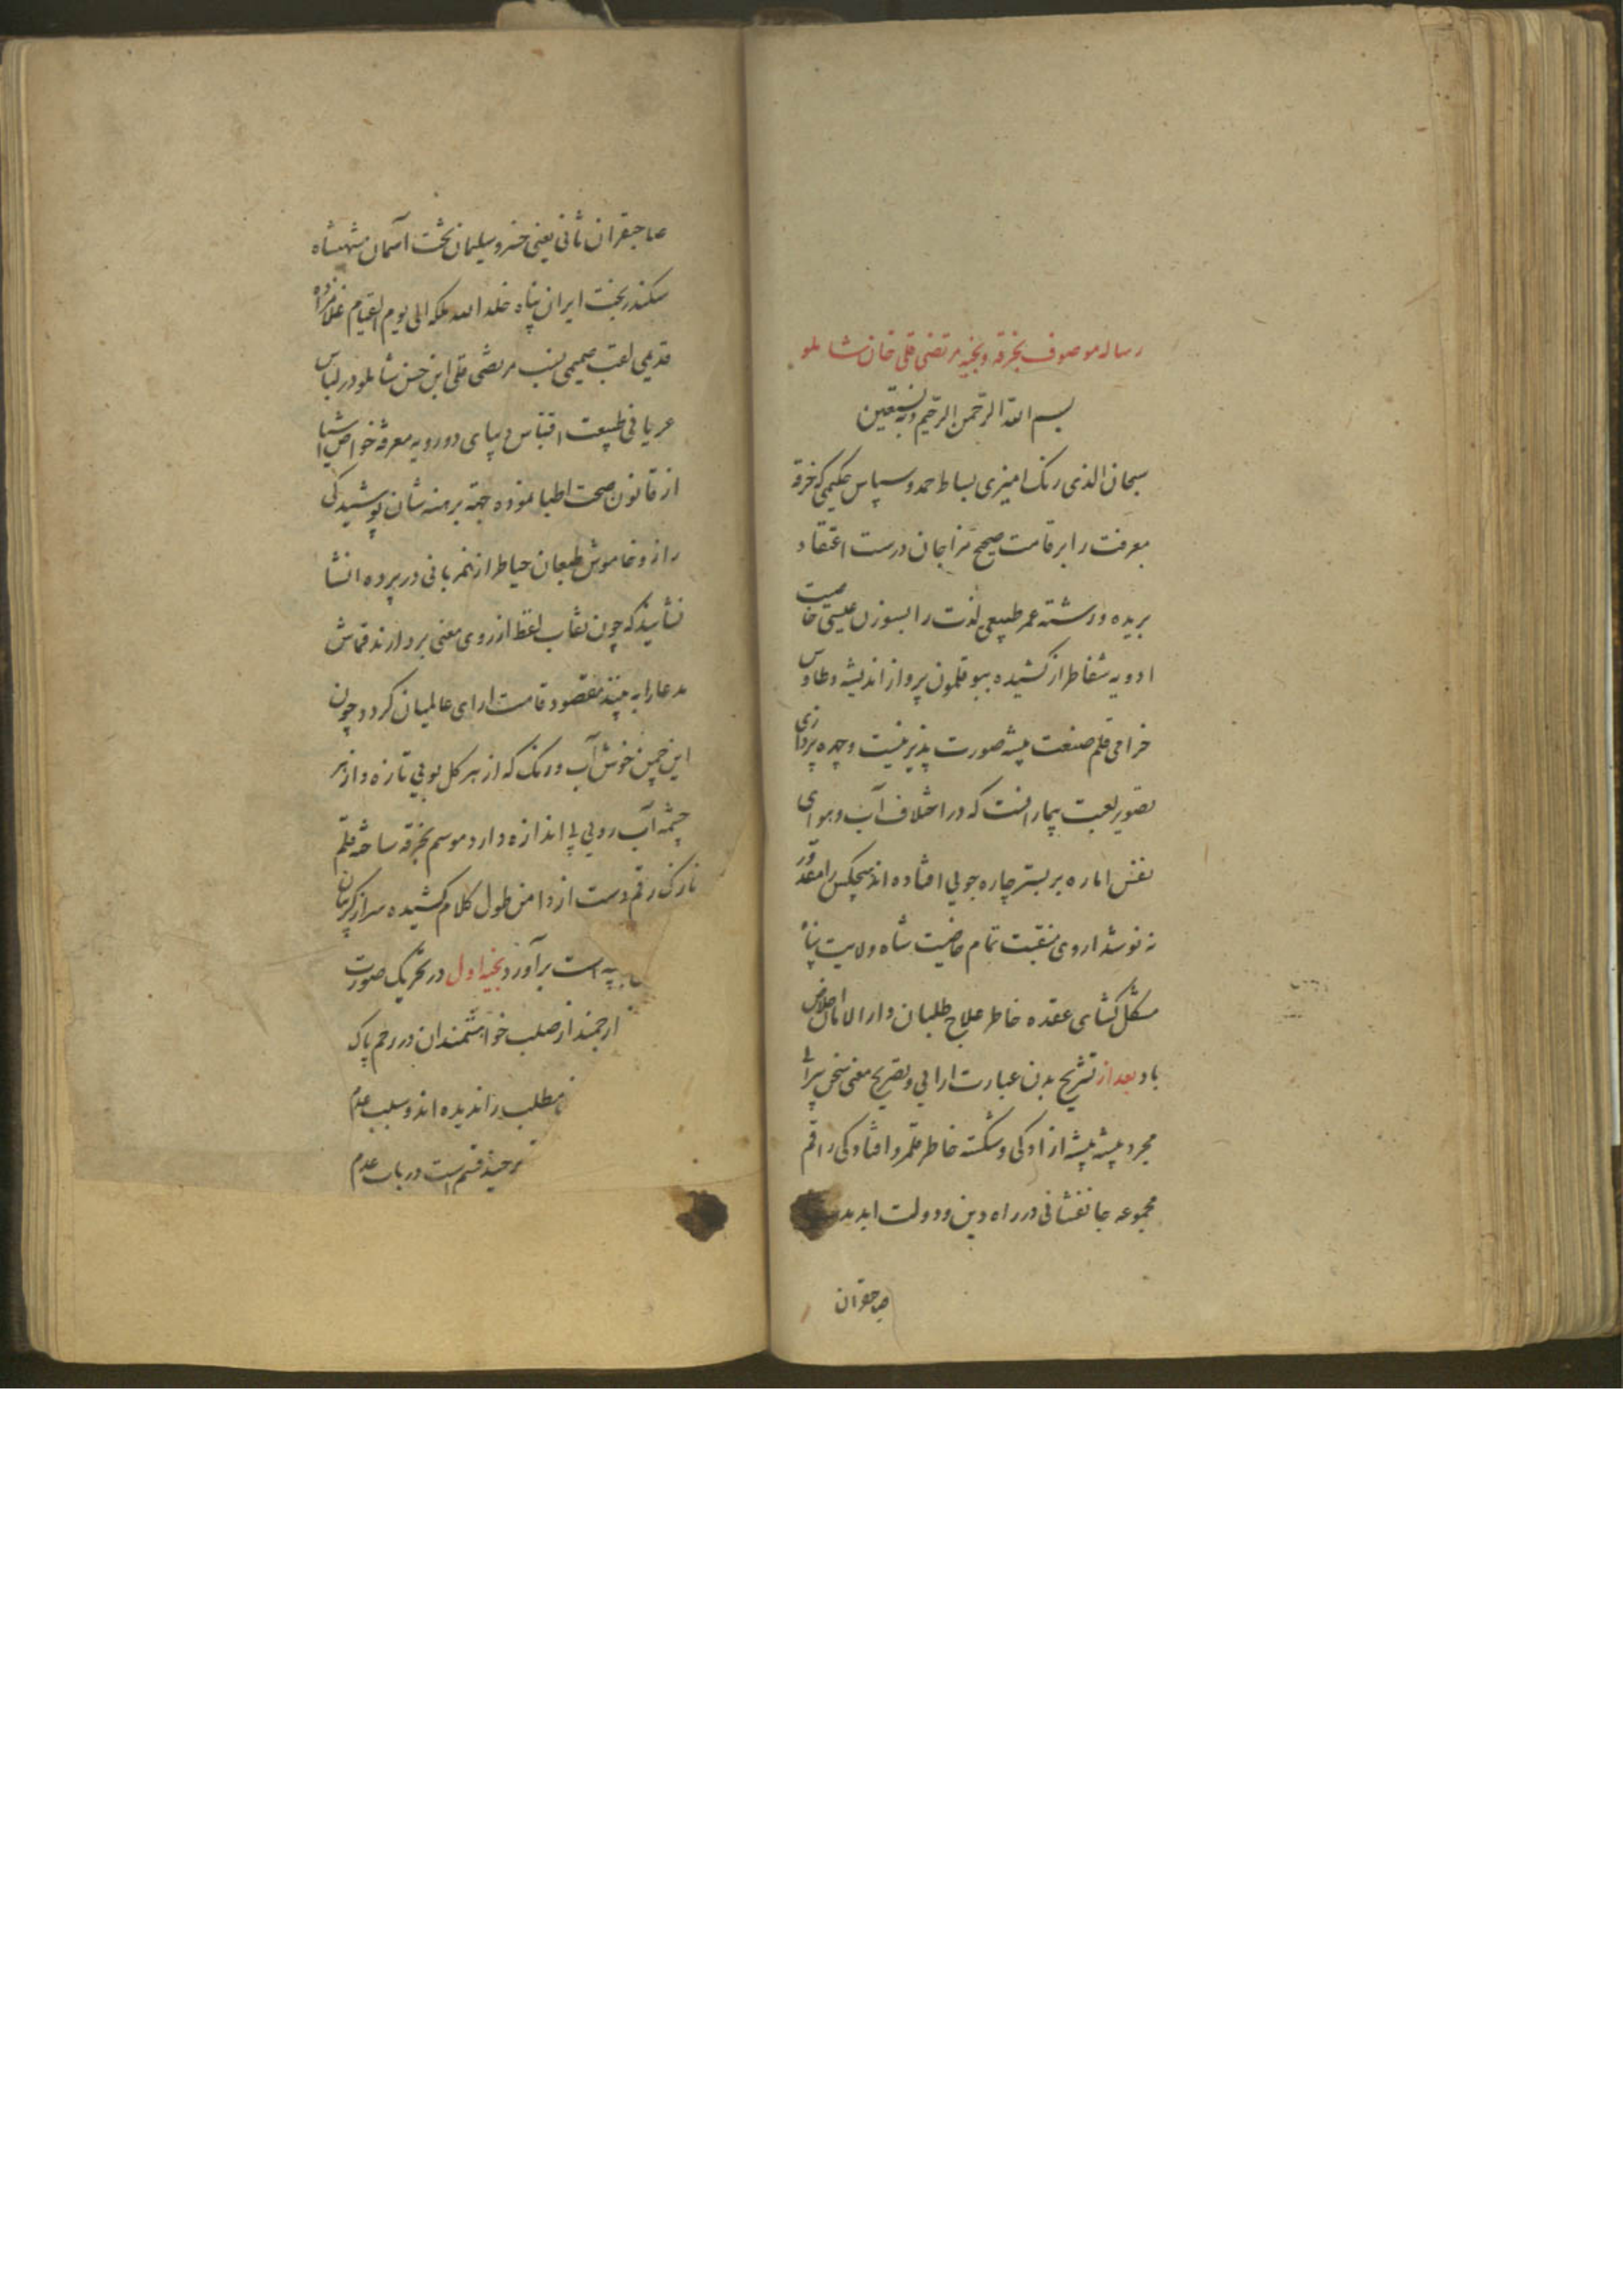 رساله موصوف بخرقه و بخیه مرتضی قلی خان شاملو
بسم الله الرحمن الرحیم وبه نستعین
سبحان الذی رنک امیزی بساط حمد وسپاس حکیمی که خرقه
معرفت را بر قامت صحیح مزاجان درست اعتقاد
بریده ورشته عمر طبیعی لذت را بسوزن عیسی خاصیت
ادویه شفا طراز کشیده ببوقلمون پرواز اندیشه وطاوس
خرامی قلم صنعت پیشه صورت پذیر نیست وچهره پردازی
تصویر لعبت بیمارانست که در اختلاف آب وهوای
نفس اماره بر بستر چاره جویی افتاده اند هیچکس را مقدور
نه نوشداروی منقبت تمام خاصیت شاه ولایت پناه
مشکل کشای عقده خاطر علاج طلبان دار الامان اخلاص
باد بعد از تشریح بدن عبارت ارایی وتصریح معنی سخن سرایی
مجرد پیشه بیشه ازادکی وشکسته خاطر قلمرو افتادکی راقم
مجموعه جانفشانی در راه دین ودولت ابد
صاحبقران
صاحبقران ثانی یعنی خسرو سلیمان تخت آسمان شهنشاه
سکندر بخت ایران پناه خلد الله ملکه الی یوم القیام غلامزاده
قدیمی لقب صمیمی نسب مرتضی قلی ابن حسن شاملو در لباس
عریانی طبیعت اقتباس دیبای دورویه معرفه خواص اشیا
از قانون صحت اطبا نموده جهة برهنه شان پوشیدکی
راز وخاموش طبعان حیاط از نمربانی در پرده انشا
نشانید که چون نقاب لفظ از روی معنی بردارند قماش
مدعا را به مقصود قامت ارای عالمیان کردد چون
این چمن خوش آب ورنک که از هر کل بویی تازه واز هر
چشمه آب رویی بی اندازه دارد موسم بخرقه ساخته قلم
نازک رقم دست از دامن طول کلام کشیده سر از کریبان
است برآورد بخیه اول در تحریک صورت
ارجمند از صلب خواهشمندان در رحم پاک
مطلب را ندیده اند وسبب عدم
برچند قسم است در باب عدم